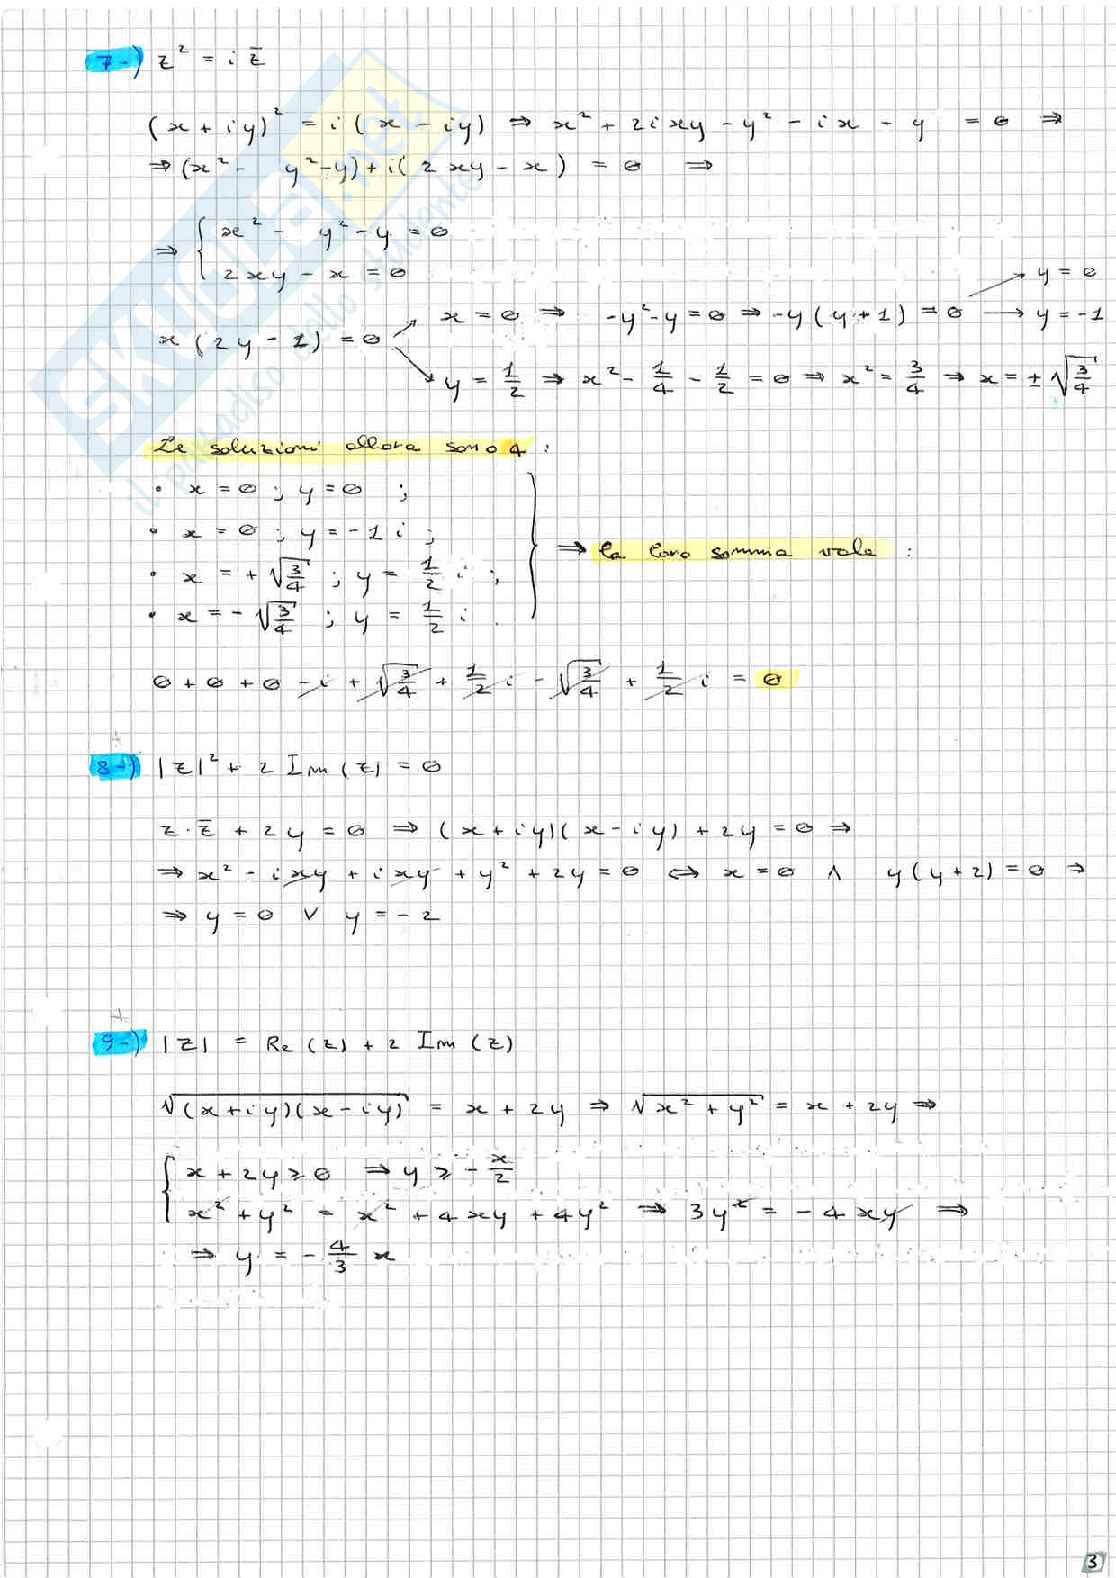 7-) z² = i z̅
(x + iy)² = i (x - iy) ⇒ x² + 2ixy - y² - ix - y = 0 ⇒
⇒ (x² - y² - y) + i( 2xy - x ) = 0 ⇒
⇒ { x² - y² - y = 0
2xy - x = 0
y = 0
x (2y - 1) = 0 x = 0 ⇒ -y² - y = 0 ⇒ -y (y + 1) = 0 → y = -1
y = 1/2 ⇒ x² - 1/4 - 1/2 = 0 ⇒ x² = 3/4 ⇒ x = ± √3/4
Le soluzioni allora sono 4 :
• x = 0 ; y = 0 ;
• x = 0 ; y = -1 i ;
• x = + √3/4 ; y = 1/2 i ;
• x = - √3/4 ; y = 1/2 i .
⇒ la loro somma vale :
0 + 0 + 0 - i + √3/4 + 1/2 i - √3/4 + 1/2 i = 0
8-) |z|² + 2 Im (z) = 0
z · z̅ + 2y = 0 ⇒ (x + iy)(x - iy) + 2y = 0 ⇒
⇒ x² - ixy + ixy + y² + 2y = 0 ⇔ x = 0 ∧ y (y + 2) = 0 ⇒
⇒ y = 0 ∨ y = - 2
9-) |z| = Re (z) + 2 Im (z)
√(x + iy)(x - iy) = x + 2y ⇒ √x² + y² = x + 2y ⇒
{ x + 2y ≥ 0 ⇒ y ≥ - x/2
x² + y² = x² + 4xy + 4y² ⇒ 3y² = - 4xy ⇒
⇒ y = - 4/3 x
3
SKUOLA.net
il paradiso dello studente